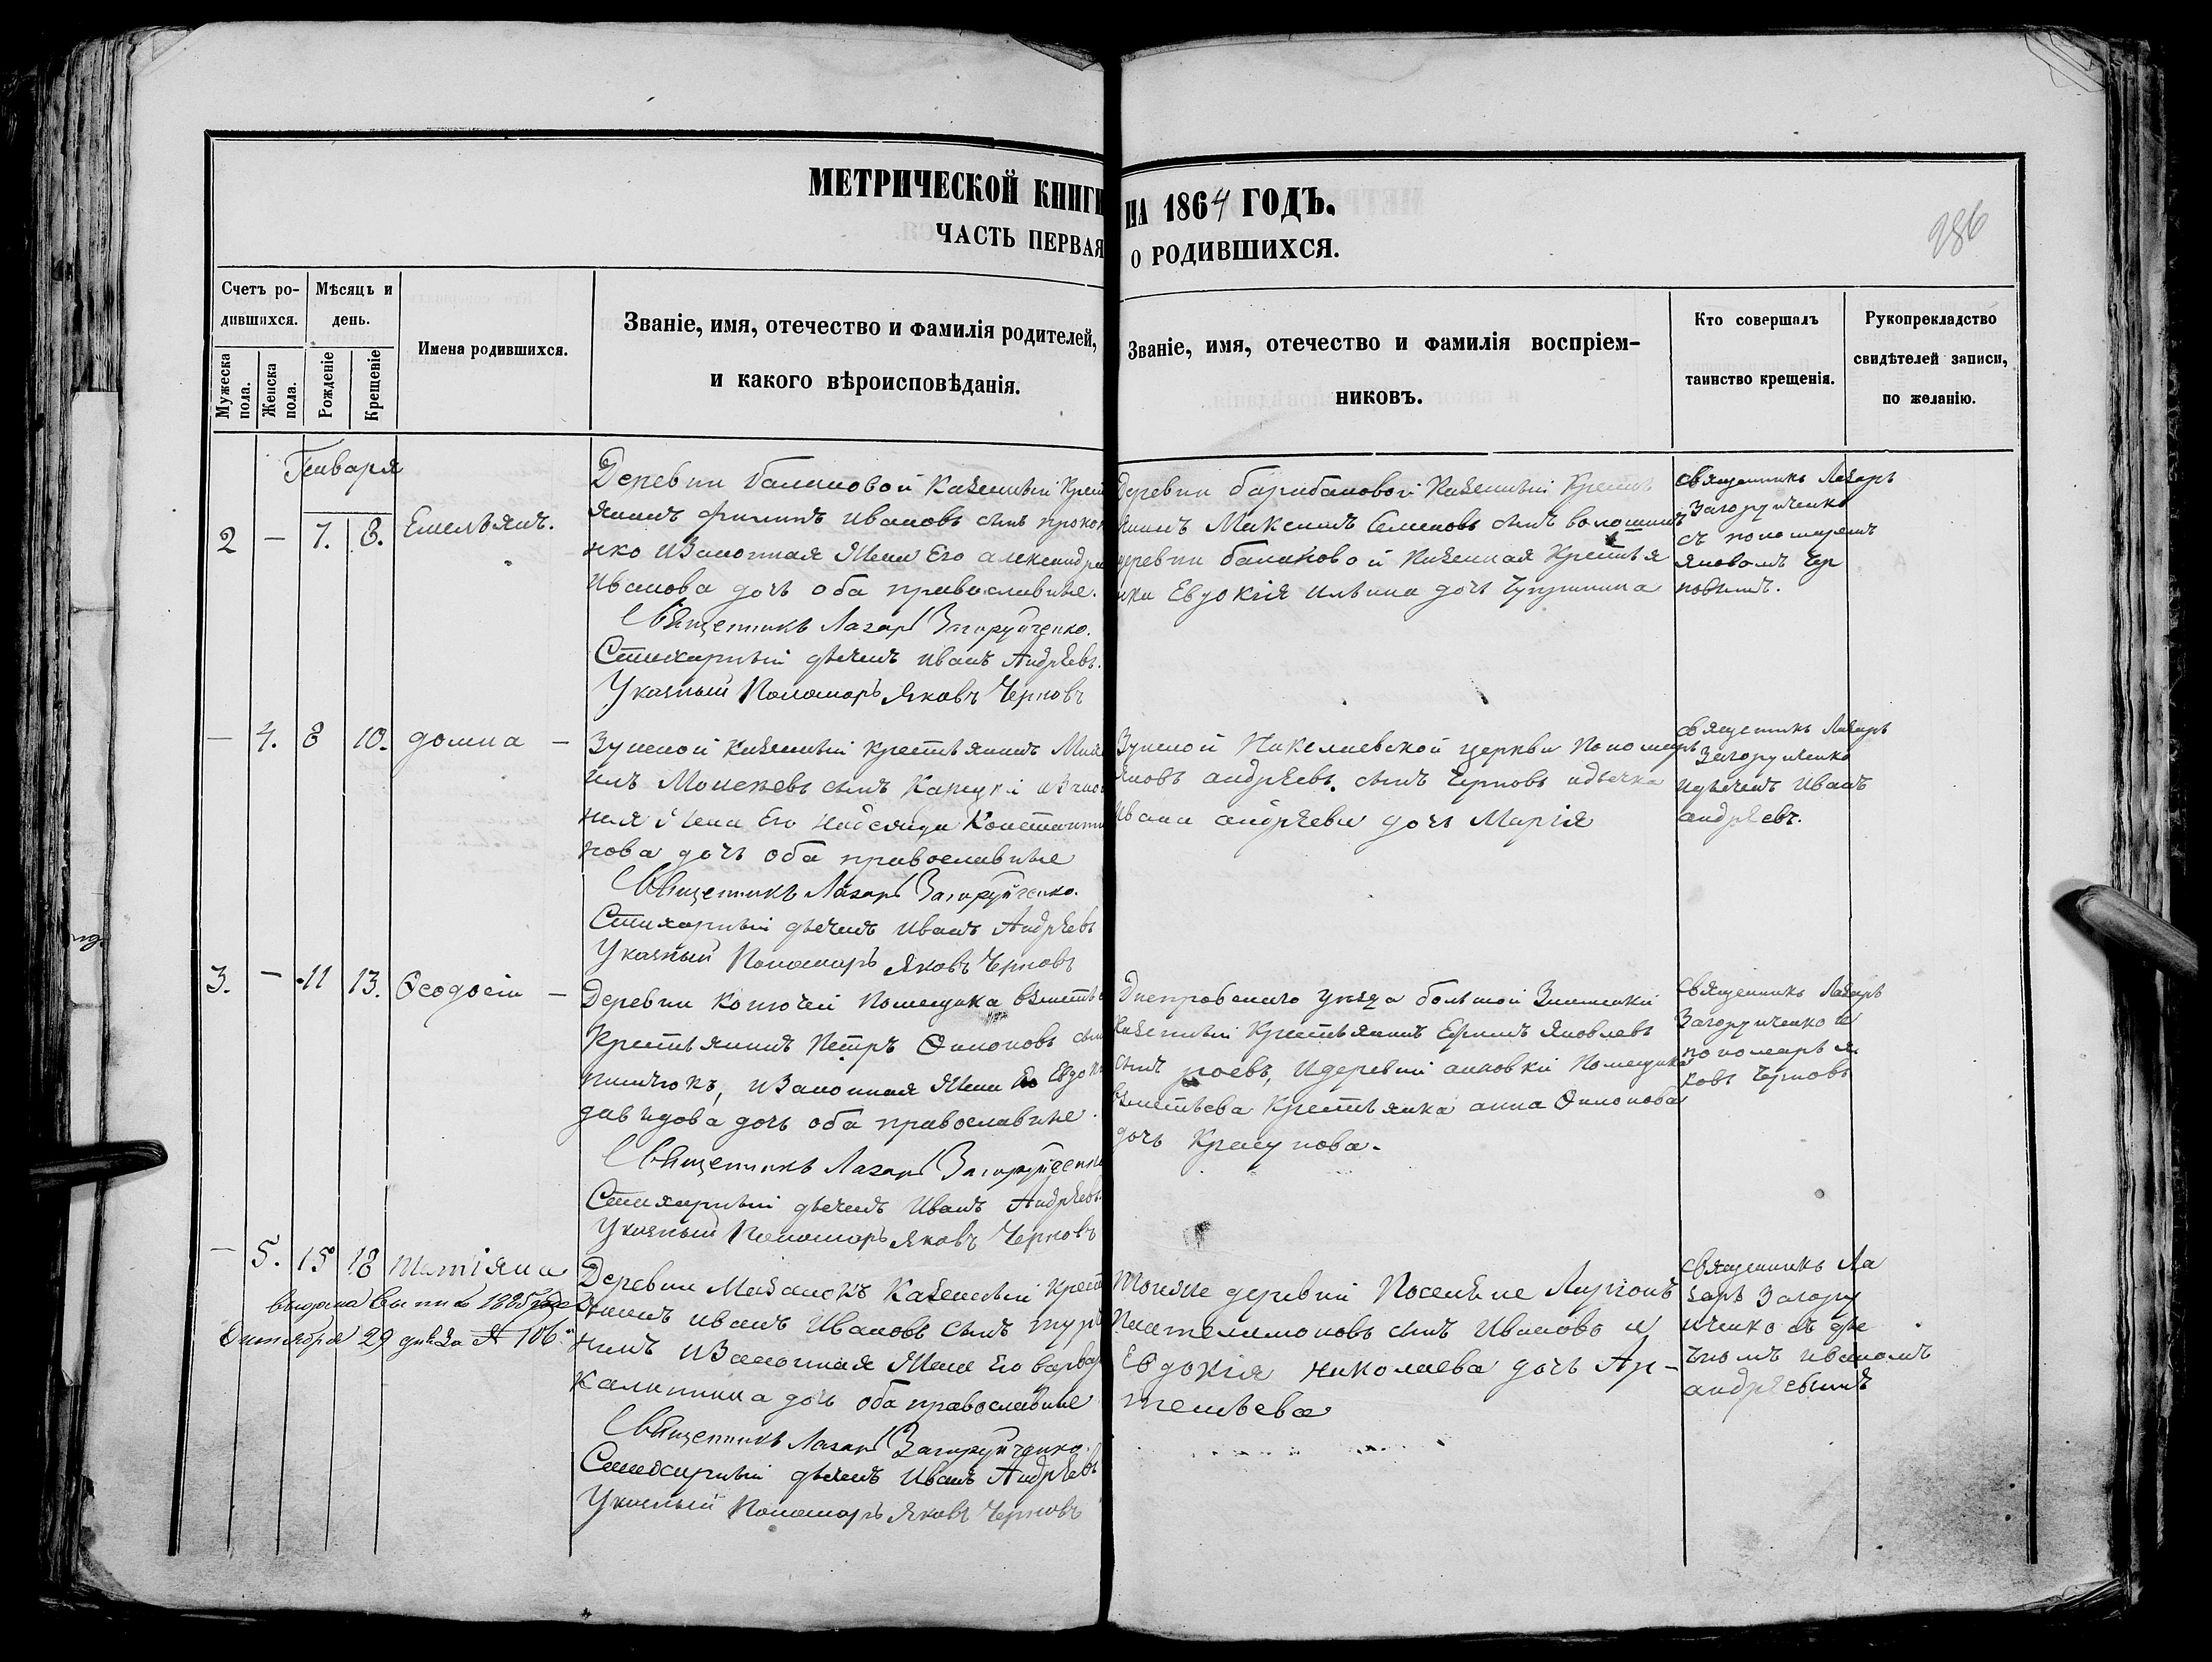 МЕТРИЧЕСКОЙ КНИГИ НА 1864 ГОДЪ.
ЧАСТЬ ПЕРВАЯ О РОДИВШИХСЯ.
286
Счетъ ро-
дившихся.
Мужеска
пола.
Женска
пола.
Мѣсяцъ и
день.
Рожденіе
Крещеніе
Имена родившихся.
Званіе, имя, отечество и фамилія родителей,
и какого вѣроисповѣданія.
Званіе, имя, отечество и фамилія воспріем-
никовъ.
Кто совершалъ
таинство крещенія.
Рукоприкладство
свидѣтелей записи,
по желанію.
Генваря
2 — 7. 8. Емельянъ.
Деревни Балановой Казенный Крест
янинъ Филипъ Ивановъ сынъ
нко и Законная Жена Его Александра
Иванова дочь оба православные.
Священникъ Лазарь Загоруйченко.
Стихарный дьячекъ Иванъ Андрѣевъ.
Указный Пономарь Яковъ Черновъ
Деревни Казенный Кресть
янинъ Максимъ Семеновъ сынъ
деревни Балановой Казенная Крестья
нка Евдокія Ильина дочь
священникъ Лазарь
Загоруйченко
съ пономаремъ
Яковомъ Чер
новымъ.
— 4. 8 10. домна —
Зуевой Казенный крестьянинъ
илъ Моисеевъ сынъ
ная Жена Его Надежда Константи
нова дочь оба православные
Священникъ Лазарь Загоруйченко.
Стихарный дьячекъ Иванъ Андрѣевъ
Указный Пономарь Яковъ Черновъ
Зуевой Николаевской церкви Пономарь
Яковъ андрѣевъ сынъ Черновъ идьячка
Ивана андрѣева дочь Марія
священникъ Лазарь
Загоруйченко
идьячекъ Иванъ
андрѣевъ.
3. — 11 13. Ѳеодосій —
Деревни Помещика
Крестьянинъ Петръ сынъ
и Законная Жена Его Евдокія
давидова дочь оба православные.
Священникъ Лазарь Загоруйченко
Стихарный дьячекъ Иванъ Андрѣевъ.
Указный Пономарь Яковъ Черновъ
Днепровскаго уѣзда большой
Казенный Крестьянинъ Ефимъ Яковлевъ
сынъ роевъ, Идеревни анновки Помещика
Крестьянка анна
дочь
священникъ Лазарь
Загоруйченко и
пономарь Я
ковъ Черновъ
— 5. 15 18 Татіяна
выдана выпись 1885 года
Октября 29 дня за № 106.
Деревни Казенный Крест
янинъ иванъ Ивановъ сынъ
и Законная Жена Его варвара
дочь оба православные
Священникъ Лазарь Загоруйченко.
Стихарный дьячекъ Иванъ Андрѣевъ
Указный Пономарь Яковъ Черновъ
Тойже деревни Поселяне
Пантелимоновъ сынъ Ивановъ и
Евдокія николаева дочь Ар-
темьева
священникъ Ла
зарь Загоруй
ченко съ дья
чкомъ иваномъ
андрѣевымъ